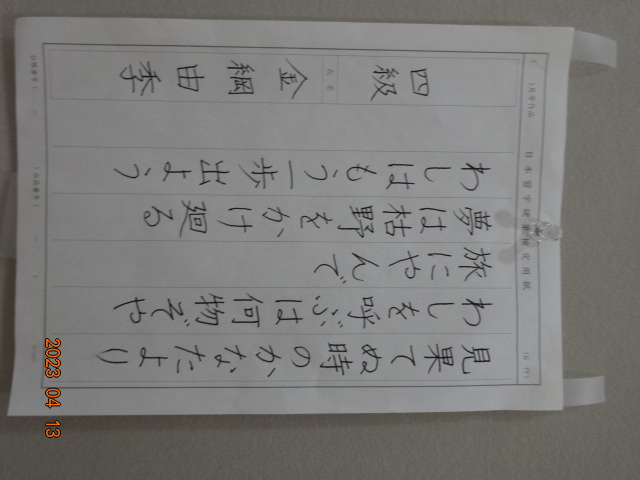 (6行)
見果てぬ時のかなたより
わしを呼ぶは何物ぞや
旅にやんで
夢は枯野をかけ廻る
わしはもう一歩出よう
四級 氏名 金綱由季
2023 04 13